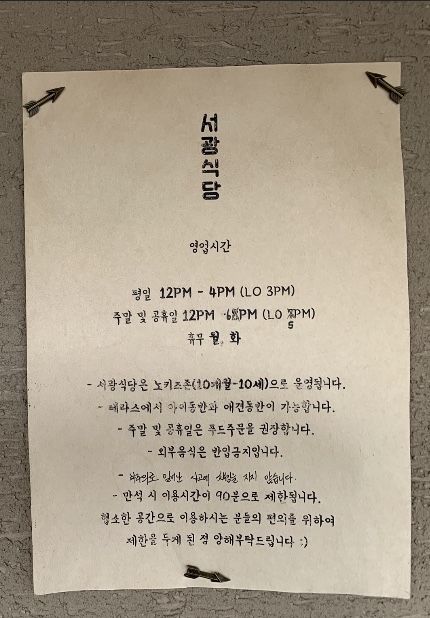 서광식당
영업시간
평일 12PM - 4PM (LO 3PM)
주말 및 공휴일 12PM - 6PM (LO 5PM)
휴무 월, 화
- 서광식당은 노키즈존(10개월-10세)으로 운영됩니다.
- 테라스에서 아이동반과 애견동반이 가능합니다.
- 주말 및 공휴일은 푸드주문을 권장합니다.
- 외부음식은 반입금지입니다.
- 부주의로 일어난 사고에 책임을 지지 않습니다.
- 만석 시 이용시간이 90분으로 제한됩니다.
협소한 공간으로 이용하시는 분들의 편의를 위하여
제한을 두게 된 점 양해부탁드립니다 :)